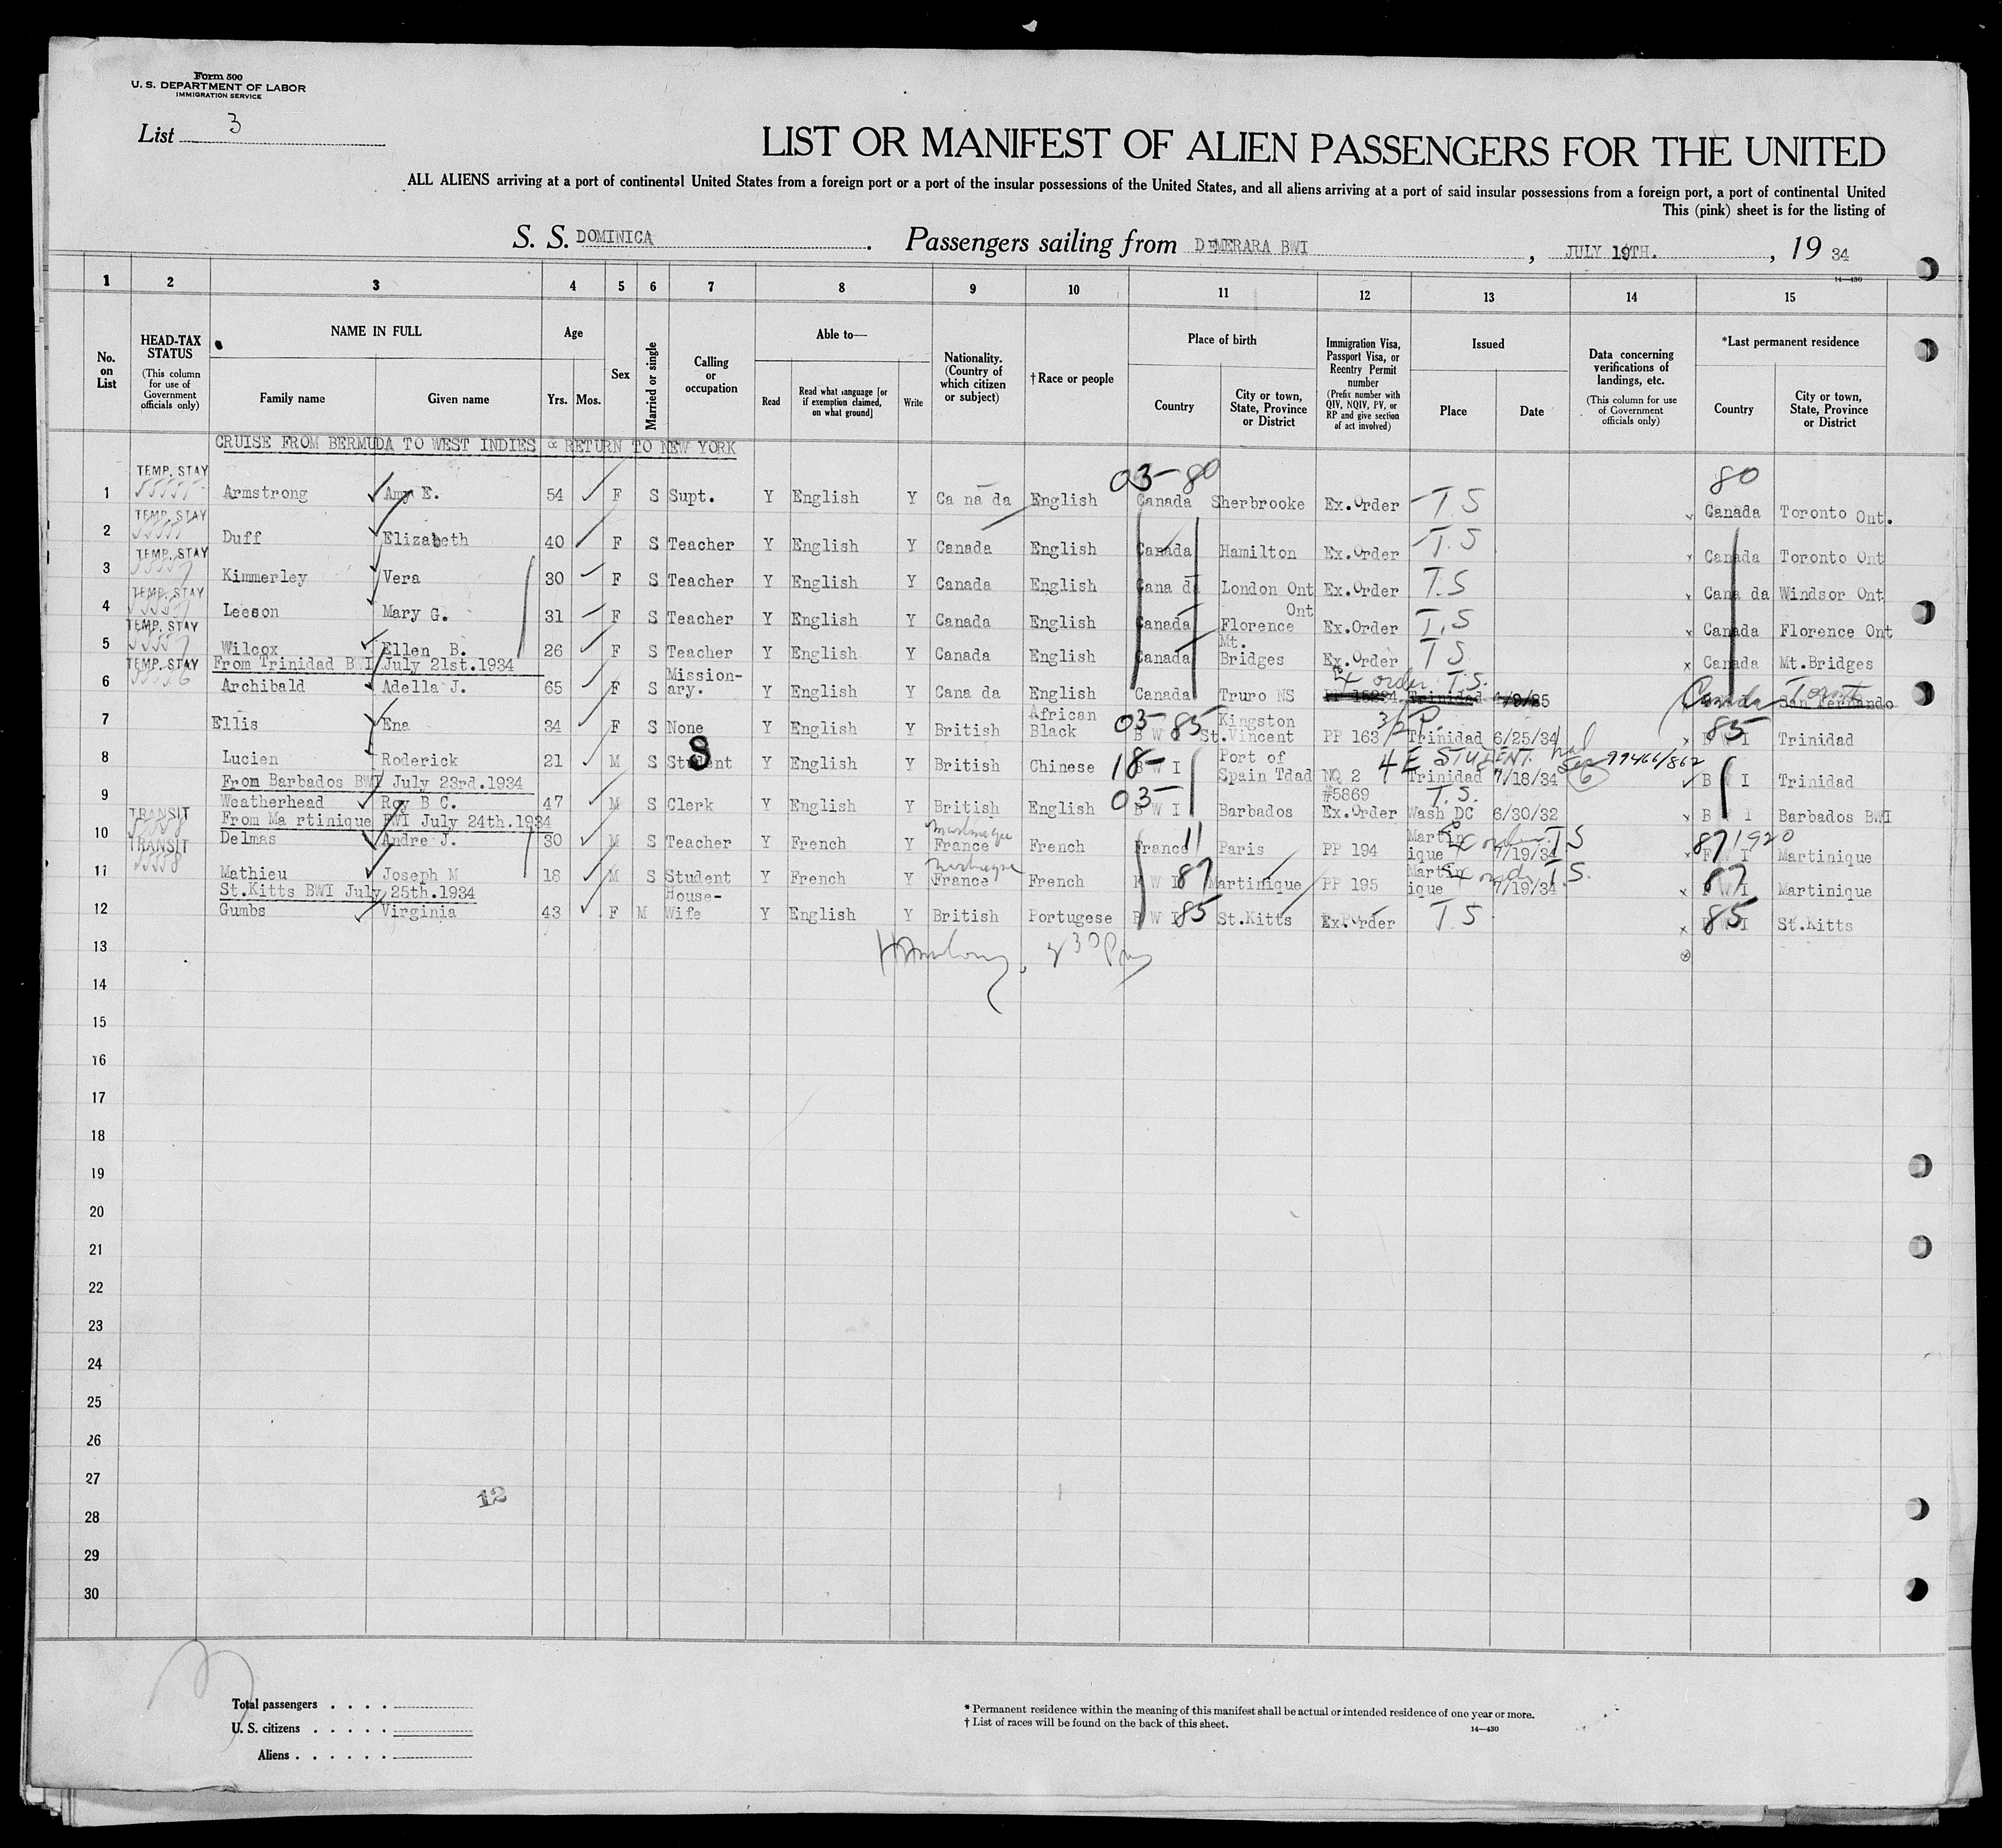 Form 500
U. S. DEPARTMENT OF LABOR
IMMIGRATION SERVICE
List 3
LIST OR MANIFEST OF ALIEN PASSENGERS FOR THE UNITED
ALL ALIENS arriving at a port of continental United States from a foreign port or a port of the insular possessions of the United States, and all aliens arriving at a port of said insular possessions from a foreign port, a port of continental United
This (pink) sheet is for the listing of
S. S. DOMINICA. Passengers sailing from DEMERARA BWI, JULY 19TH., 1934
14—430
1 2 3 4 5 6 7 8 9 10 11 12 13 14 15
No. on List
HEAD-TAX STATUS (This column for use of Government officials only)
NAME IN FULL
Family name Given name
Age
Yrs. Mos.
Sex
Married or single
Calling or occupation
Able to—
Read Read what language [or if exemption claimed, on what ground] Write
Nationality. (Country of which citizen or subject)
† Race or people
Place of birth
Country City or town, State, Province or District
Immigration Visa, Passport Visa, or Reentry Permit number (Prefix number with QIV, NQIV, PV, or RP and give section of act involved)
Issued
Place Date
Data concerning verifications of landings, etc. (This column for use of Government officials only)
*Last permanent residence
Country City or town, State, Province or District
CRUISE FROM BERMUDA TO WEST INDIES & RETURN TO NEW YORK
03-80 80
1 TEMP. STAY Armstrong Amy E. 54 F S Supt. Y English Y Ca na da English Canada Sherbrooke Ex.Order T.S Canada Toronto Ont.
2 TEMP. STAY Duff Elizabeth 40 F S Teacher Y English Y Canada English Canada Hamilton Ex.Order T.S Canada Toronto Ont
3 TEMP. STAY Kimmerley Vera 30 F S Teacher Y English Y Canada English Cana da London Ont Ex.Order T.S Cana da Windsor Ont
4 TEMP. STAY Leeson Mary G. 31 F S Teacher Y English Y Canada English Canada Florence Ont Ex.Order T.S Canada Florence Ont
5 TEMP. STAY Wilcox Ellen B. 26 F S Teacher Y English Y Canada English Canada Mt. Bridges Ex.Order T S Canada Mt.Bridges
From Trinidad BWI July 21st.1934
6 TEMP. STAY Archibald Adella J. 65 F S Mission-ary. Y English Y Cana da English Canada Truro NS Ex order T.S. Trinidad Canada San Fernando
7 Ellis Ena 34 F S None Y English Y British African Black 03-85 B W I Kingston St.Vincent PP 163 Trinidad 6/25/34 85 B W I Trinidad
8 Lucien Roderick 21 M S Student S Y English Y British Chinese 18- B W I Port of Spain Tdad NQ 2 4 E STUDENT Trinidad 7/18/34 99466/862 B W I Trinidad
From Barbados BWI July 23rd.1934
9 Weatherhead Roy B C. 47 M S Clerk Y English Y British English 03- B W I Barbados #5869 Ex.Order T.S. Wash DC 6/30/32 B W I Barbados BWI
From Ma rtinique BWI July 24th.1934
10 TRANSIT Delmas Andre J. 30 M S Teacher Y French Y France French France 11 Paris PP 194 Martin ique T S 7/19/34 87 1920 F W I Martinique
11 TRANSIT 55558 Mathieu Joseph M 18 M S Student Y French Y France French F W I 87 Martinique PP 195 Martin ique T.S. 7/19/34 87 F W I Martinique
St.Kitts BWI July 25th.1934
12 Gumbs Virginia 43 F M House-Wife Y English Y British Portugese B W I 85 St.Kitts Ex.Order T.S 85 B W I St.Kitts
13
14
15
16
17
18
19
20
21
22
23
24
25
26
27
28
29
30
12
Total passengers . . . .
U. S. citizens . . . . .
Aliens . . . . . .
* Permanent residence within the meaning of this manifest shall be actual or intended residence of one year or more.
† List of races will be found on the back of this sheet.
14—430